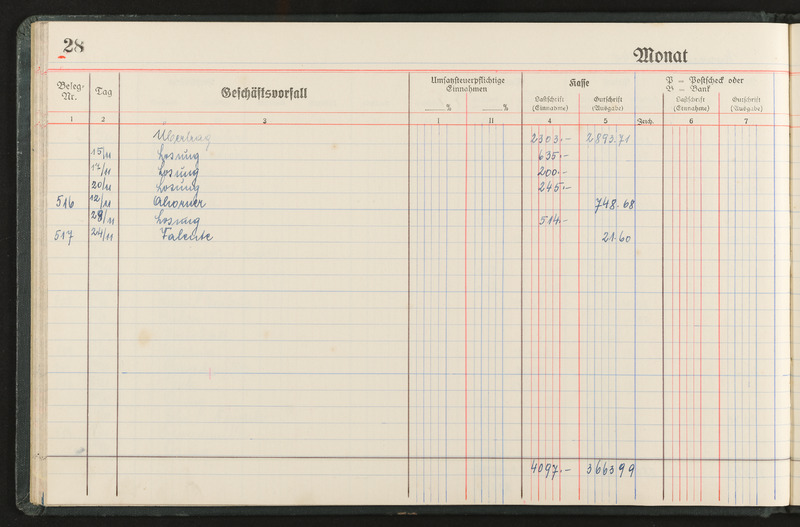 28
Monat
Beleg-Nr. Tag Geschäftsvorfall Umsatzsteuerpflichtige Einnahmen Kasse P = Postscheck oder B = Bank
% % Lastschrift (Einnahme) Gutschrift (Ausgabe) Zeich. Lastschrift (Einnahme) Gutschrift (Ausgabe)
1 2 3 I II 4 5 6 7
Übertrag 2303.- 2893.71
15/11 Losung 635.-
17/11 Losung 200.-
20/11 Losung 245.-
516 12/11 Ahorner 748.68
28/11 Losung 514.-
517 24/11 21.60
4097.- 366399